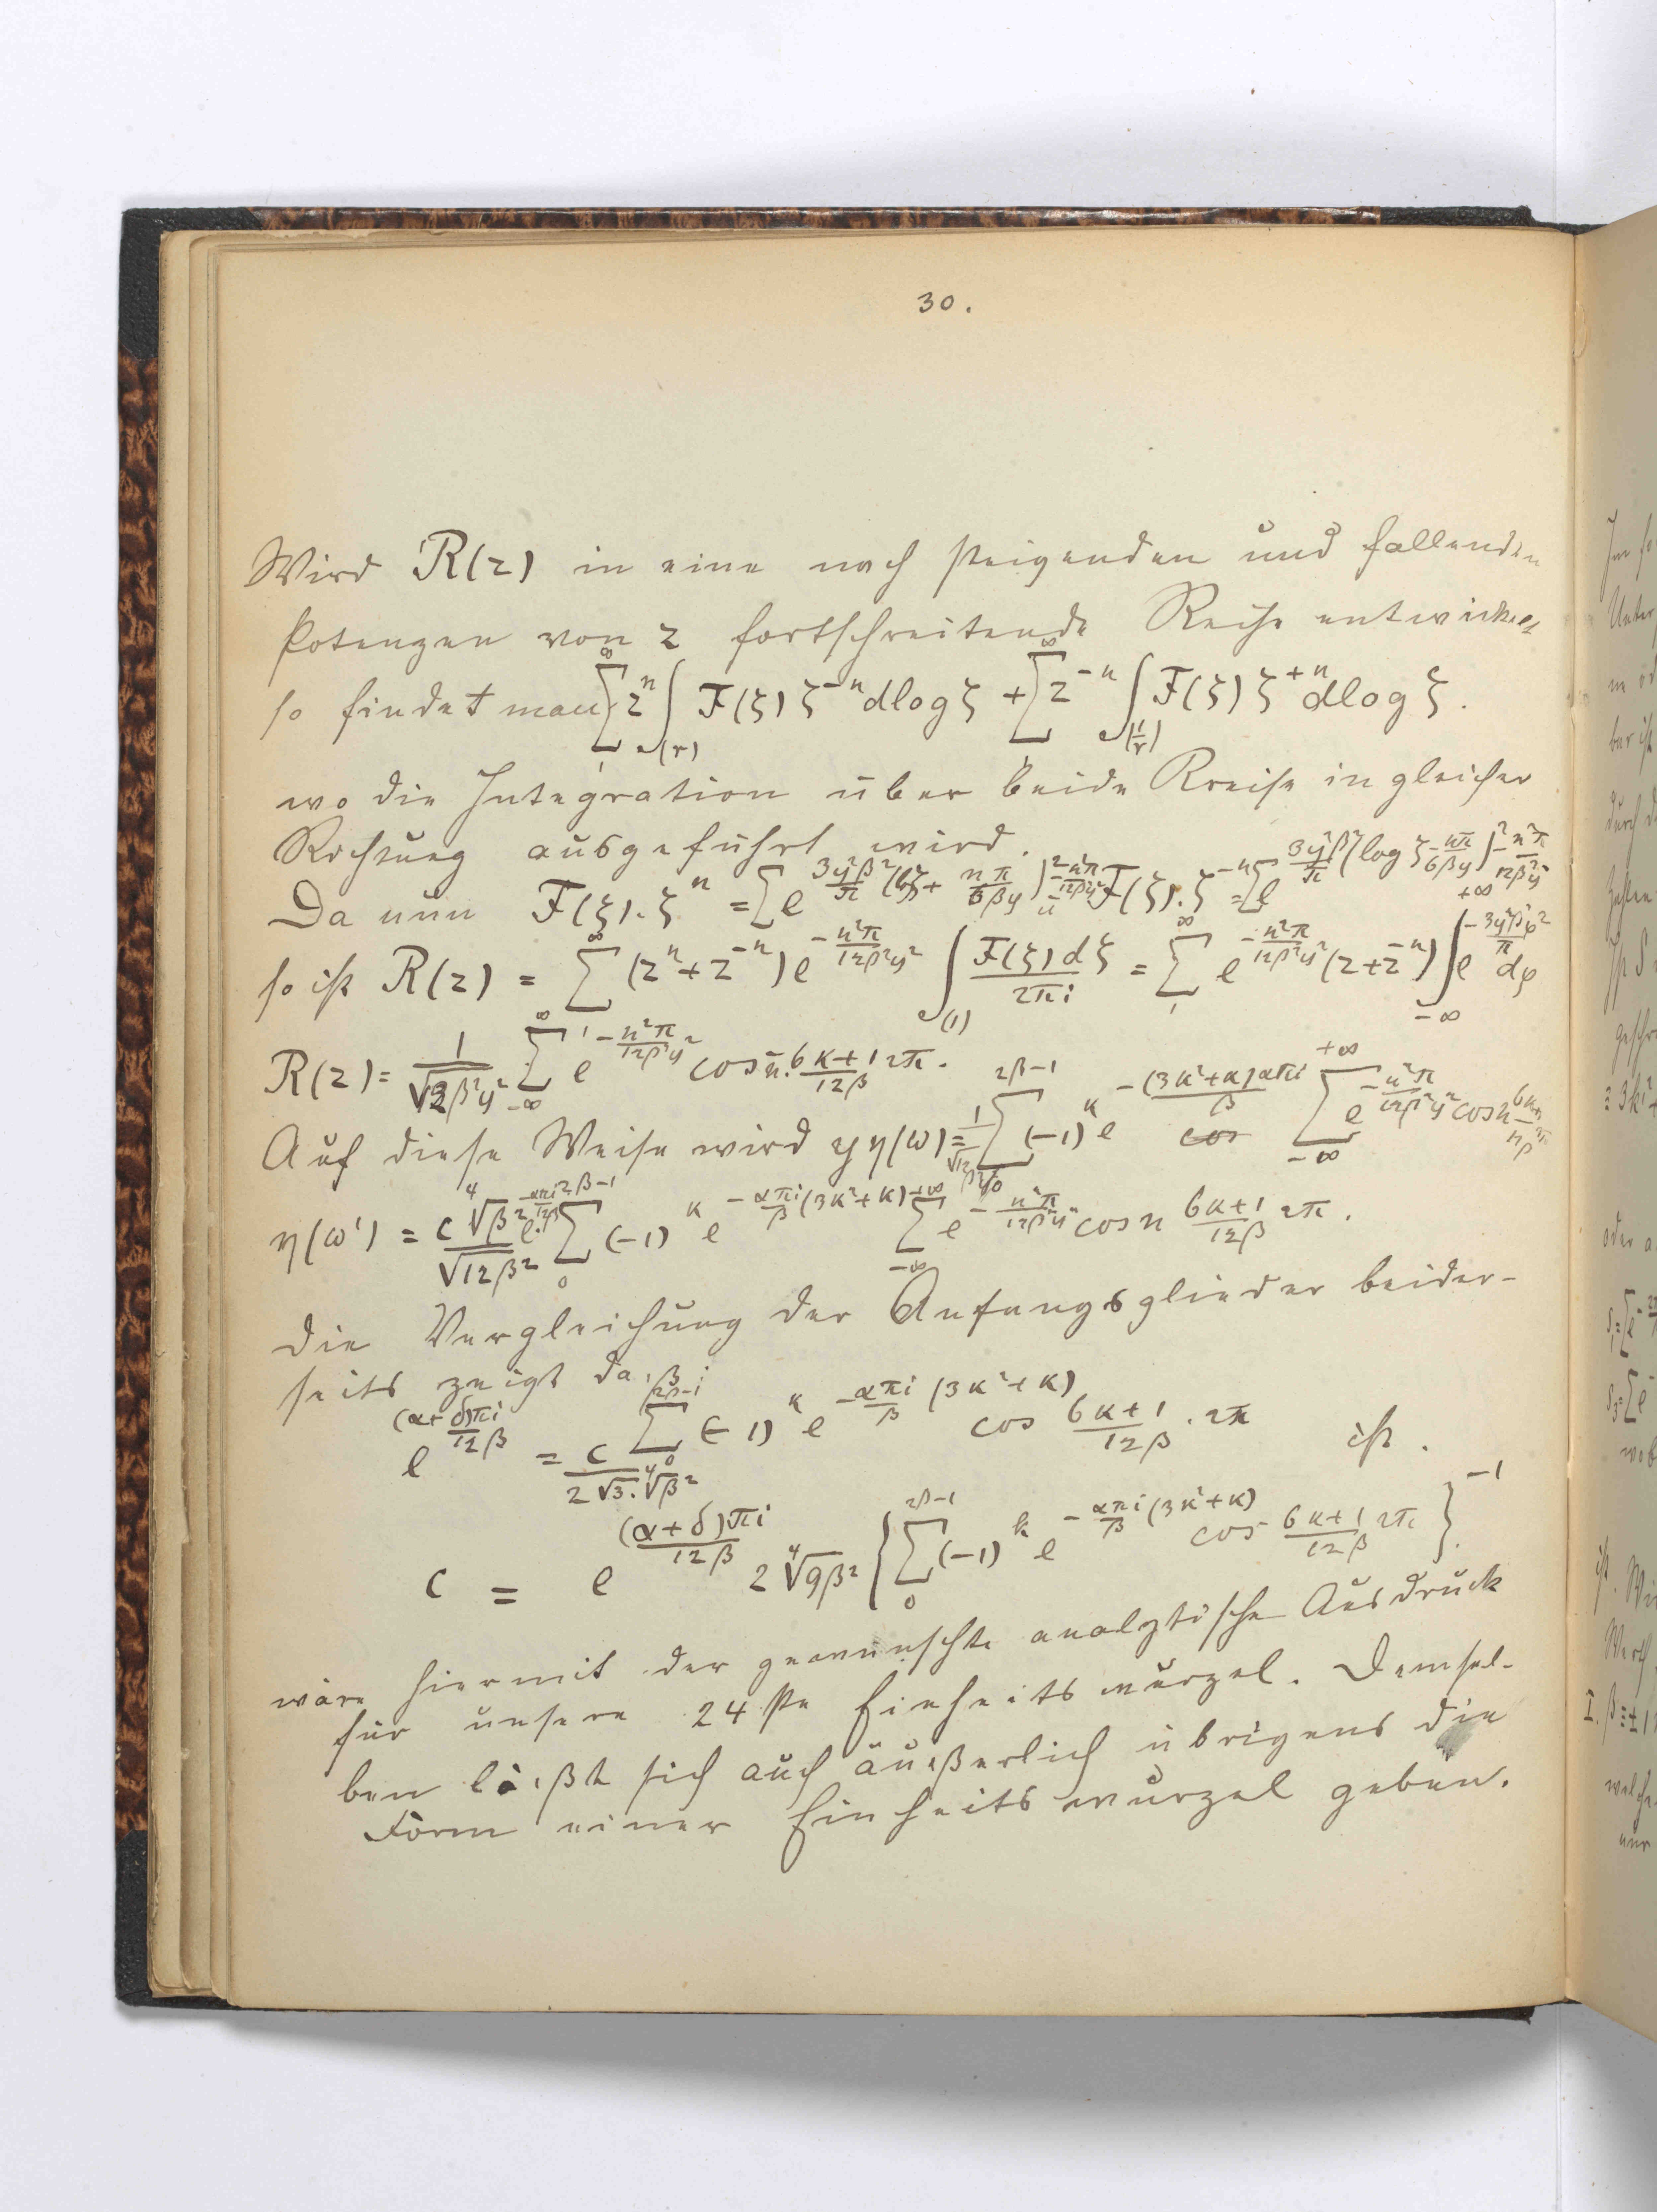 30.
Wird R(z) in eine nach steigenden und fallenden
Potenzen von z fortschreitende Reihe entwickelt
so findet man \sum_{1}^{\infty} z^{n} \int_{(r)} F(ζ) ζ^{-n} dlog ζ + \sum_{1}^{\infty} z^{-n} \int_{(\frac{1}{r})} F(ζ) ζ^{+n} dlog ζ.
wo die Integration über beide Kreise in gleicher
Richtung ausgeführt wird.
Da nun F(ζ).ζ^{n} = \sum e^{\frac{3y^2β^2}{π}(lζ + \frac{nπ}{6βy})^2 - \frac{n^2π}{12β^2y^2}} u F(ζ).ζ^{-n} = \sum e^{\frac{3y^2β^2}{π}(log ζ - \frac{nπ}{6βy})^2 - \frac{n^2π}{12β^2y^2}}
so ist R(z) = \sum_{1}^{\infty} (z^{n} + z^{-n}) e^{-\frac{n^2π}{12β^2y^2}} \int_{(1)} \frac{F(ζ) dζ}{2πi} = \sum_{1}^{\infty} e^{-\frac{n^2π}{12β^2y^2}} (z + z^{-n}) \int_{-\infty}^{+\infty} e^{-\frac{3y^2β^2φ^2}{π}} dφ
R(z) = \frac{1}{\sqrt{12}β^2y^2} \sum_{-\infty}^{\infty} e^{-\frac{n^2π}{12β^2y^2}} cos n. \frac{6κ+1}{12β} 2π.
Auf diese Weise wird y η(ω) = \frac{1}{\sqrt{12}β^2y^2} \sum_{0}^{2β-1} (-1)^{κ} e^{-\frac{(3κ^2+κ)απi}{β}} cos \sum_{-\infty}^{+\infty} e^{-\frac{n^2π}{12β^2y^2}} cos n \frac{6κ+1}{12β} 2π
η(ω') = \frac{c \sqrt[4]{β^2} e^{-\frac{απi}{12β}}}{\sqrt{12β^2}} \sum_{0}^{2β-1} (-1)^{κ} e^{-\frac{απi}{β}(3κ^2+κ)} \sum_{-\infty}^{+\infty} e^{-\frac{n^2π}{12β^2y^2}} cos n \frac{6κ+1}{12β} 2π.
Die Vergleichung der Anfangsglieder beider-
seits zeigt daß
e^{\frac{(α+δ)πi}{12β}} = \frac{c}{2\sqrt{3}.\sqrt[4]{β^2}} \sum_{0}^{2β-1} (-1)^{κ} e^{-\frac{απi}{β}(3κ^2+κ)} cos \frac{6κ+1}{12β}.2π ist.
c = e^{\frac{(α+δ)πi}{12β}} 2\sqrt[4]{9β^2} \{ \sum_{0}^{2β-1} (-1)^{k} e^{-\frac{απi}{β}(3κ^2+κ)} cos \frac{6κ+1}{12β} 2π \}^{-1}.
wäre hiermit der gewünschte analytische Ausdruck
für unsere 24ste Einheitswurzel. Demsel-
ben läßt sich auch äußerlich übrigens die
Form einer Einheitswurzel geben.